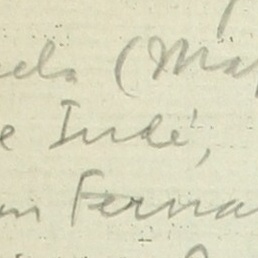 ela (Ma
e Indé,
an Ferna